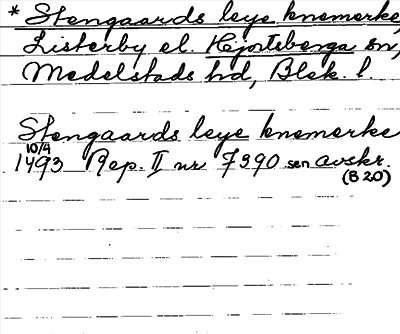 * Stengaards leye knemerke,
Listerby el. Hjortsberga sn,
Medelstads hd, Blek. l.
Stengaards leye knemerke
10/4
1493 Rep. II nr 7390 sen avskr.
(B 20)